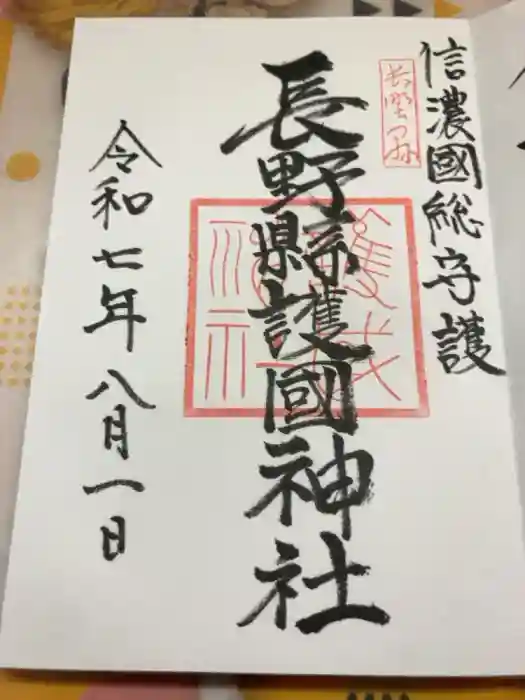 信濃國総守護
長野縣護國神社
令和七年八月一日